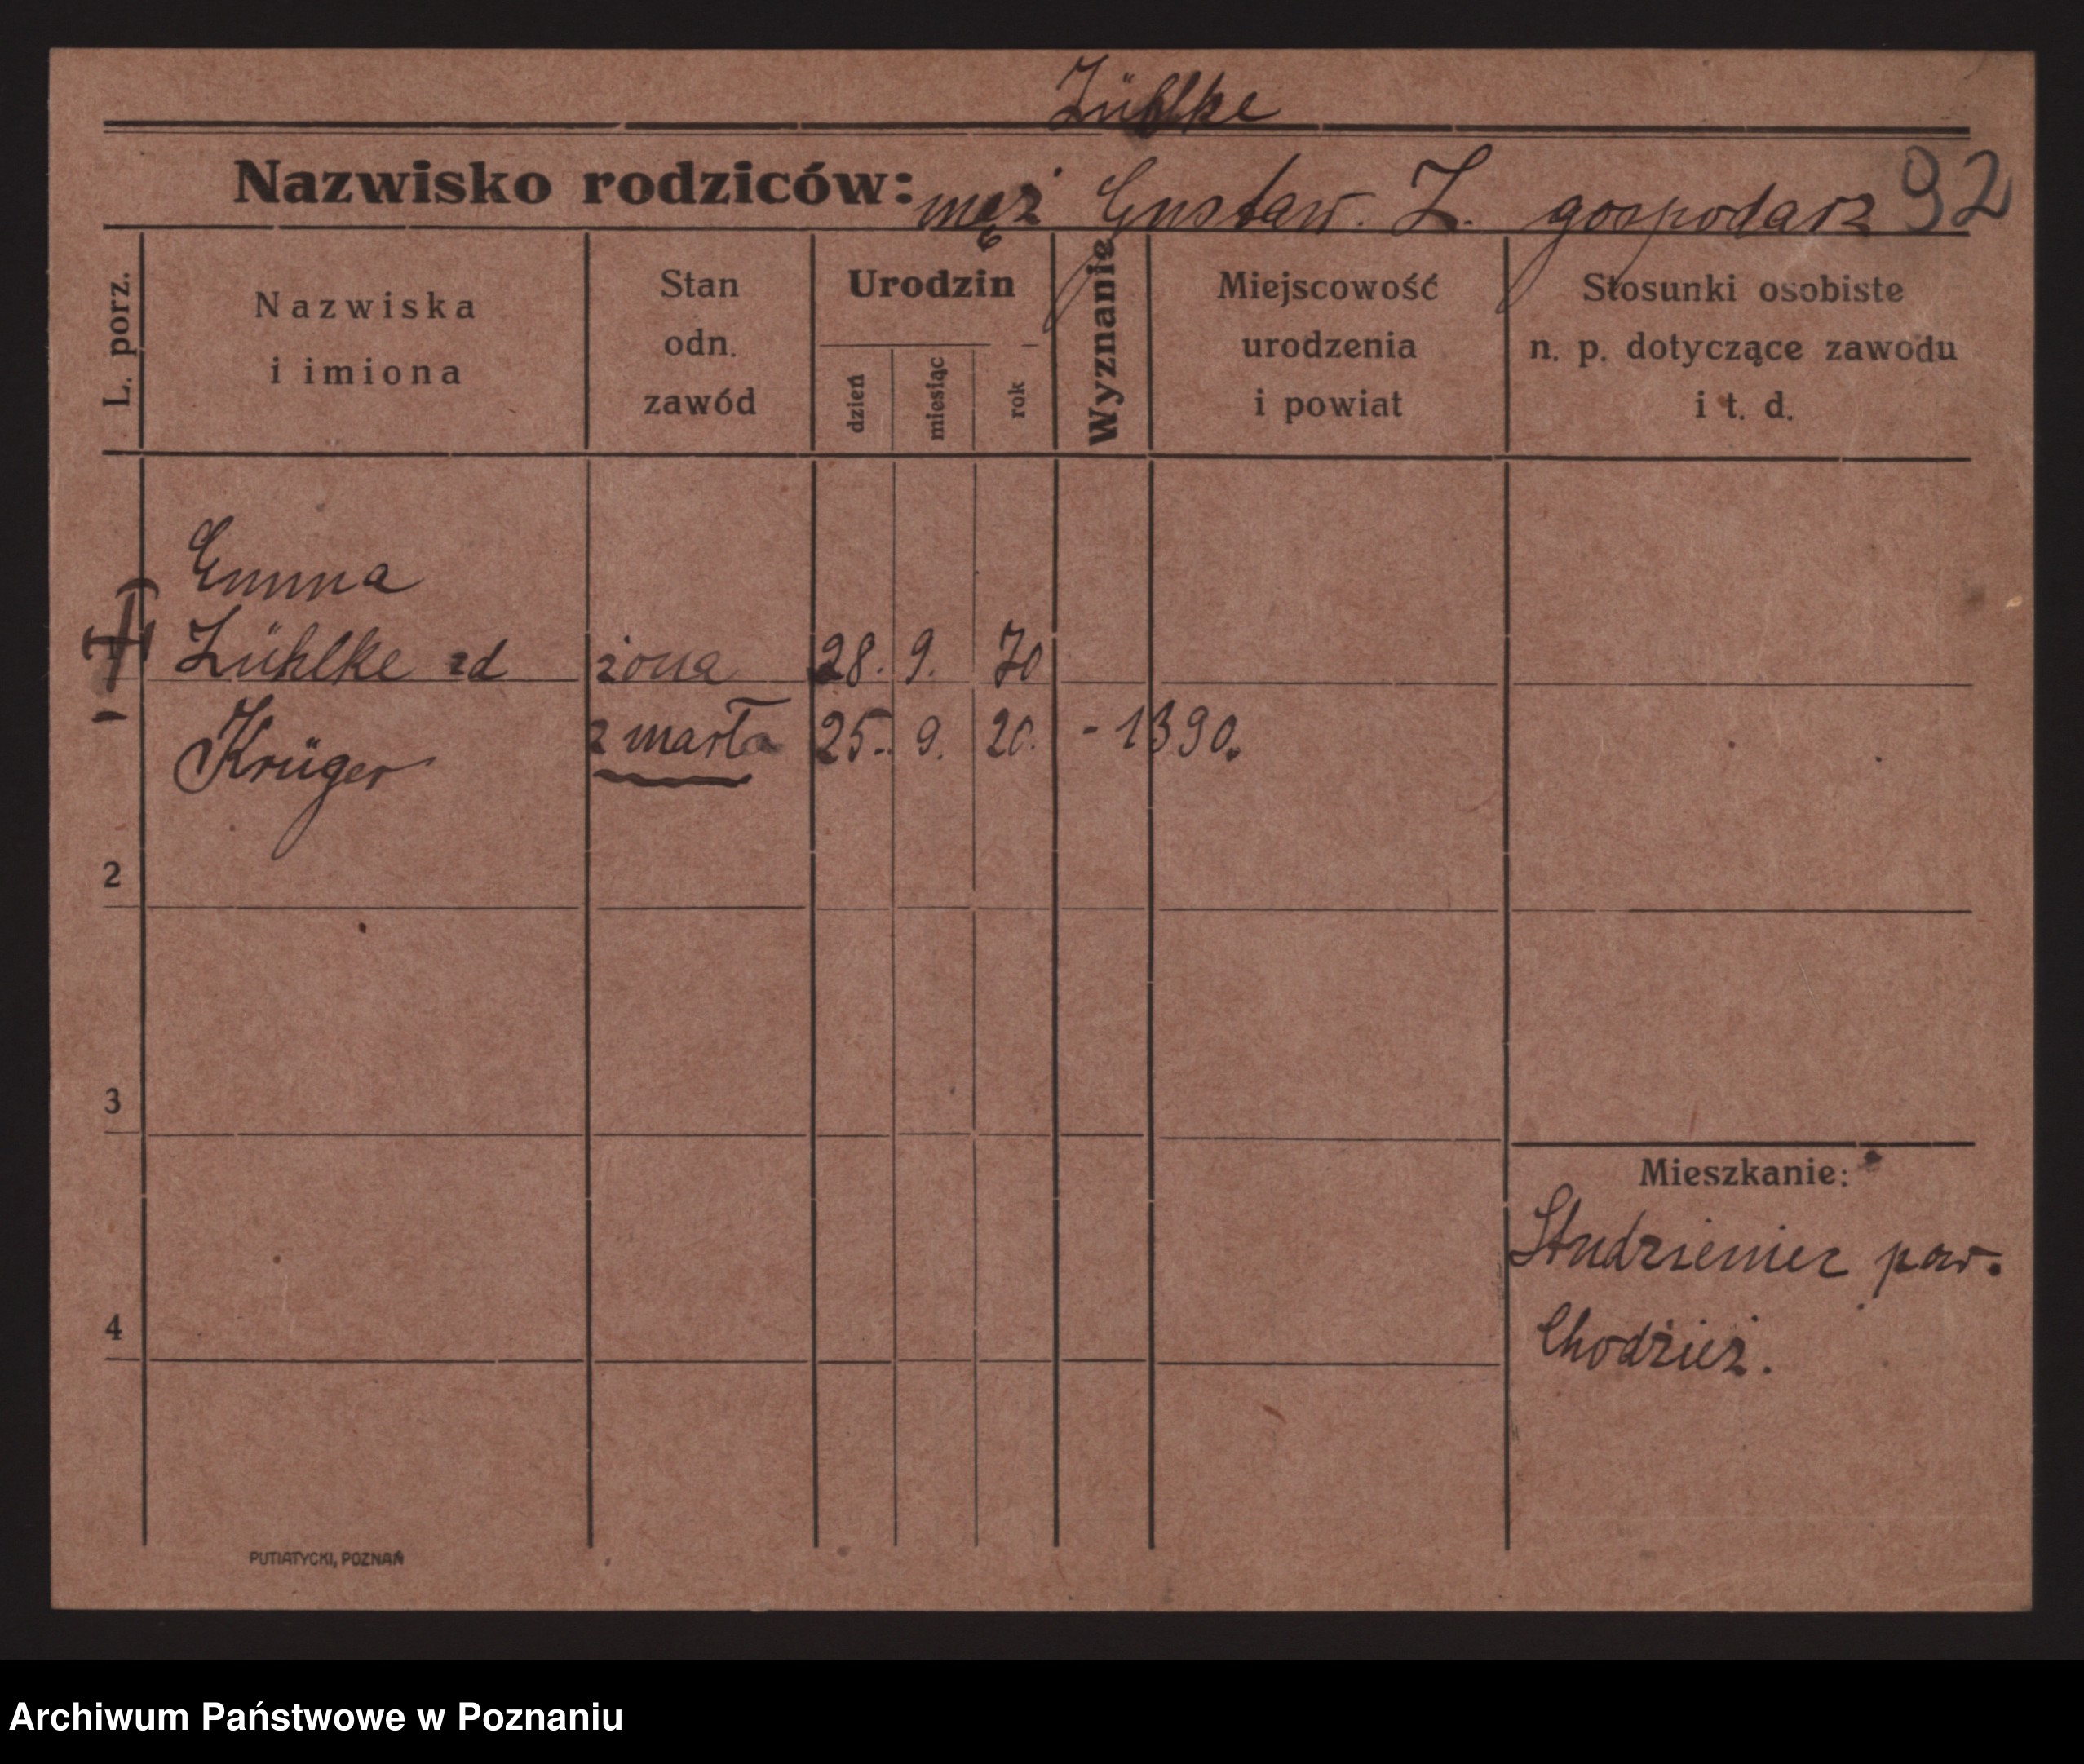 Zühlke
Nazwisko rodziców: mąż Gustaw. Z. gospodarz 92
L. porz.
Nazwiska
i imiona
Stan
odn.
zawód
Urodzin
dzień
miesiąc
rok
Wyznanie
Miejscowość
urodzenia
i powiat
Stosunki osobiste
n. p. dotyczące zawodu
i t. d.
Emma
Zühlke zd żona 28. 9. 70
Krüger zmarła 25. 9. 20. - 1390.
2
3
4
Mieszkanie:
Studzieniec pow.
Chodzież.
PUTIATYCKI, POZNAŃ
Archiwum Państwowe w Poznaniu